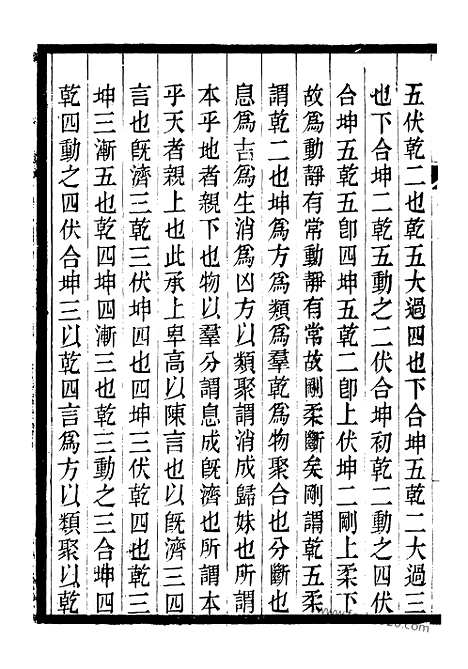 五伏乾二也乾五大過四也下合坤五乾二大過三
也下合坤二乾五動之二伏合坤初乾二動之四伏
合坤五乾五卽四坤五乾二卽上伏坤二剛上柔下
故爲動靜有常動靜有常故剛柔斷矣剛謂乾五柔
謂乾二也坤爲方爲類爲羣乾爲物聚合也分斷也
息爲吉爲生消爲凶方以類聚謂消成歸妹也所謂
本乎地者親下也物以羣分謂息成旣濟也所謂本
乎天者親上也此承上卑高以陳言也以旣濟三四
言也旣濟三乾三伏坤四也四坤三伏乾四也乾三
坤三漸五也乾四坤四漸三也乾三動之三合坤四
乾四動之四伏合坤三以乾四言爲方以類聚以乾